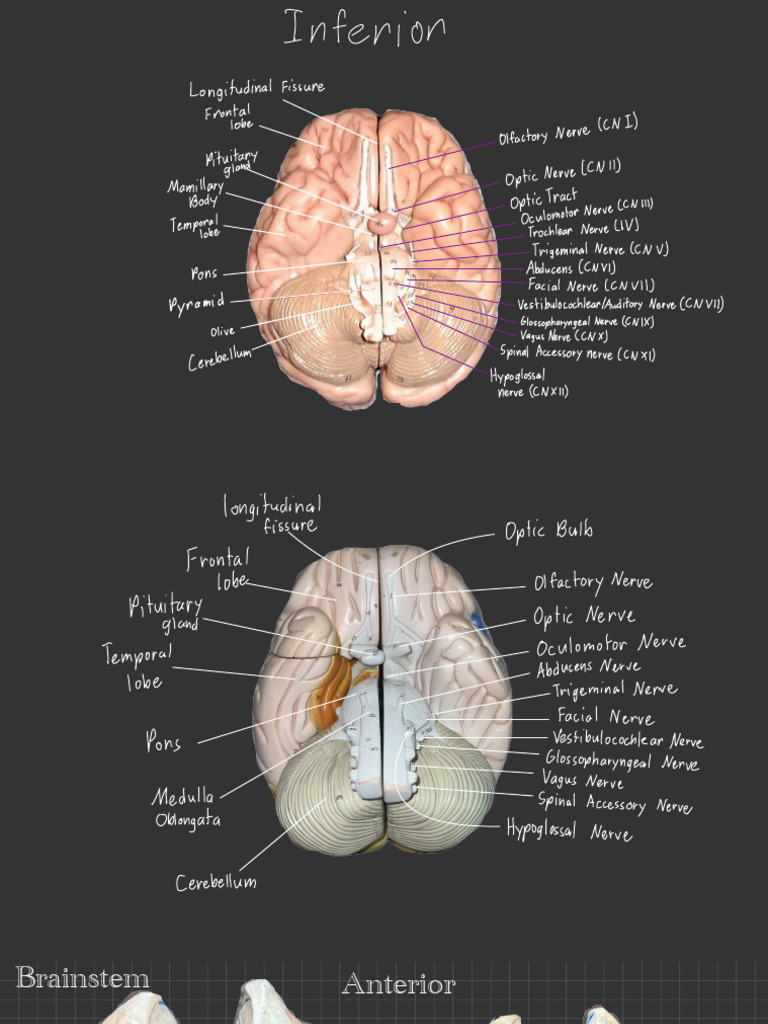 Inferior
Longitudinal Fissure
Frontal
lobe
Pituitary
gland
Mamillary
Body
Temporal
lobe
Pons
Pyramid
Olive
Cerebellum
Olfactory Nerve (CN I)
Optic Nerve (CN II)
Optic Tract
Oculomotor Nerve (CN III)
Trochlear Nerve (IV)
Trigeminal Nerve (CN V)
Abducens (CN VI)
Facial Nerve (CN VII)
Vestibulocochlear/Auditory Nerve (CN VII)
Glossopharyngeal Nerve (CN IX)
Vagus Nerve (CN X)
Spinal Accessory nerve (CN XI)
Hypoglossal
nerve (CN XII)
longitudinal
fissure
Frontal
lobe
Pituitary
gland
Temporal
lobe
Pons
Medulla
Oblongata
Cerebellum
Optic Bulb
Olfactory Nerve
Optic Nerve
Oculomotor Nerve
Abducens Nerve
Trigeminal Nerve
Facial Nerve
Vestibulocochlear Nerve
Glossopharyngeal Nerve
Vagus Nerve
Spinal Accessory Nerve
Hypoglossal Nerve
Brainstem
Anterior